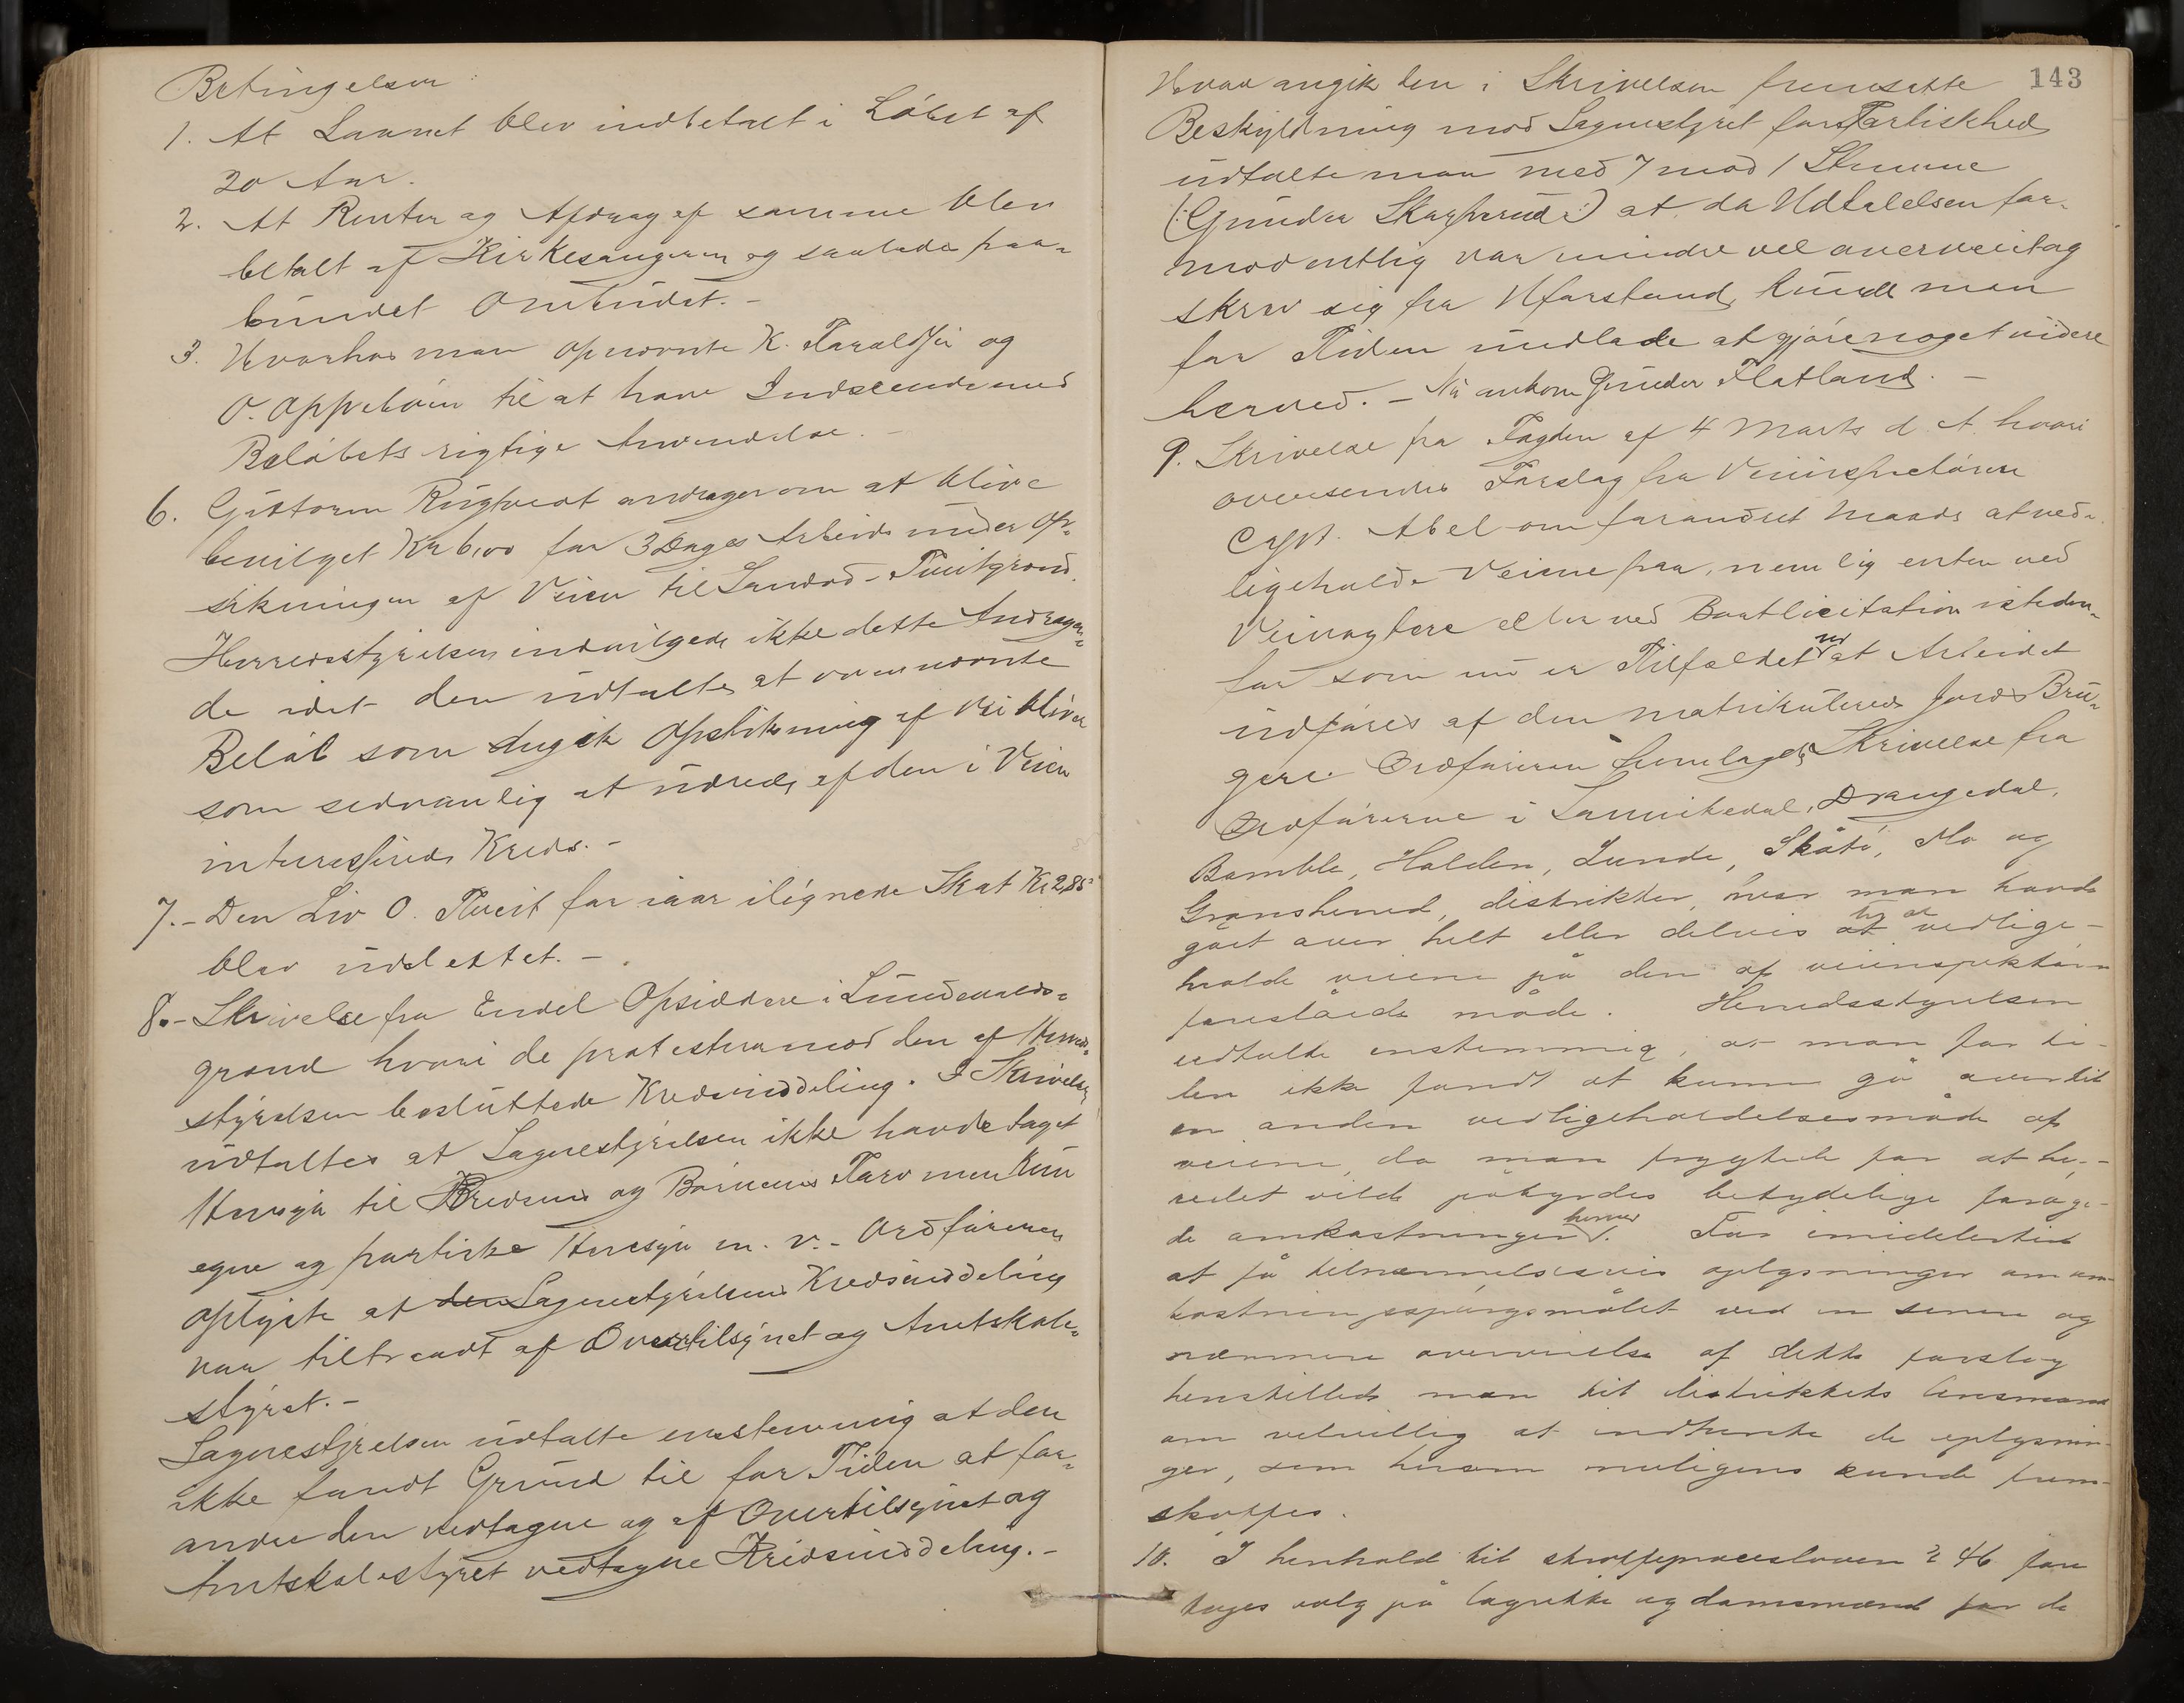 Betingelser
1. At Laanet blev indbetalt i Løbet af
20 Aar.
2. At Renter og Afdrag af samme blev
betalt af Kirkesangeren og saalede paa-
bundet Ombudet. -
3. Hvorhos man opnævnte K. Taraldsø og
O. Oppebøen til at have Indseende med
Beløbets rigtige Anvendelse. -
6. Guttorm Rugtveit andrager om at blive
bevilget Kr 6,00 for 3 Dages Arbeide under Op-
stikningen af Veien til Sandød-Tveitgrend.
Herredsstyrelsen indvilgede ikke dette Andragen-
de idet den udtalte, at ovennævnte
Beløb som angik Opstikning af Vei bliver
som sedvanlig at udrede af den i Veien
interesserede Kreds. -
7. - Den Liv O. Tveit for iaar ilignede Skat Kr 2,85
blev udslettet. -
8. - Skrivelse fra Endel Opsiddere i
grend hvori de protesterer mod den af Herreds-
styrelsen besluttede Kredsinddeling. I Skrivelsen
udtaltes at Sognestyrelsen ikke havde taget
Hensyn til Kredsens og Børnenes Tarv men kun
egne og partiske Hensyn m. v. - Ordføreren
oplyste at den Sognestyrelsens Kredsinddeling
var tiltraadt af Overtilsynet og Amtskole-
styret. -
Sognestyrelsen udtalte enstemmig at den
ikke fandt Grund til for Tiden at for-
andre den vedtagne og af Overtilsynet og
Amtskolestyret vedtagne Kredsinddeling. -
143
Hvad angik den i Skrivelsen fremsatte
Beskyldning mod Sognestyret for Partiskhed
udtalte man med 7 mod 1 Stemme
(: Gunder :) at da Udtalelsen for-
modentlig var mindre vel overveiet og
skrev sig fra Uforstand, kunde man
for Tiden undlade at gjøre noget videre
herved. - Nu ankom Gunder Flatland. -
9. Skrivelse fra Fogden af 4 Marts d. A. hvori
oversendes Forslag fra Veiinspektøren
Capt. Abel om forandret Maade at ved-
ligeholde Veiene paa, nemlig enten ved
Veivogtere eller ved Bortlicitation isteden-
for som nu er Tilfældet ved at Arbeidet
udføres af den matrikulerede Jords Bru-
gere. Ordføreren fremlagde Skrivelse fra
Ordførerne i Sannikedal, Drangedal,
Bamble, Holden, Lunde, Skåtø, Mo og
Gransherred, distrikter, hvor man havde
gået over helt eller delvis at til at vedlige-
holde veiene på den af veiinspektøren
foreslåede måde. Herredsstyrelsen
udtalte enstemmig, at man for ti-
den ikke fandt at kunne gå over til
en anden vedligeholdelsesmåde af
veiene, da man frygtede for at he-
redet vilde påbyrdes betydelige forøge-
de omkostninger herved. For imidlertid
at få tilnærmelsesvis oplysninger om om-
kostningsspørgsmålet ved en senere og
nærmere overveielse af dette forslag
henstillede man til distriktets lensmand
om velvillig at indhente de oplysnin-
ger, som herom muligens kunde frem-
skaffes.
10. I henhold til straffeprocesloven § 46 fore
toges valg på lagrette og domsmænd for de